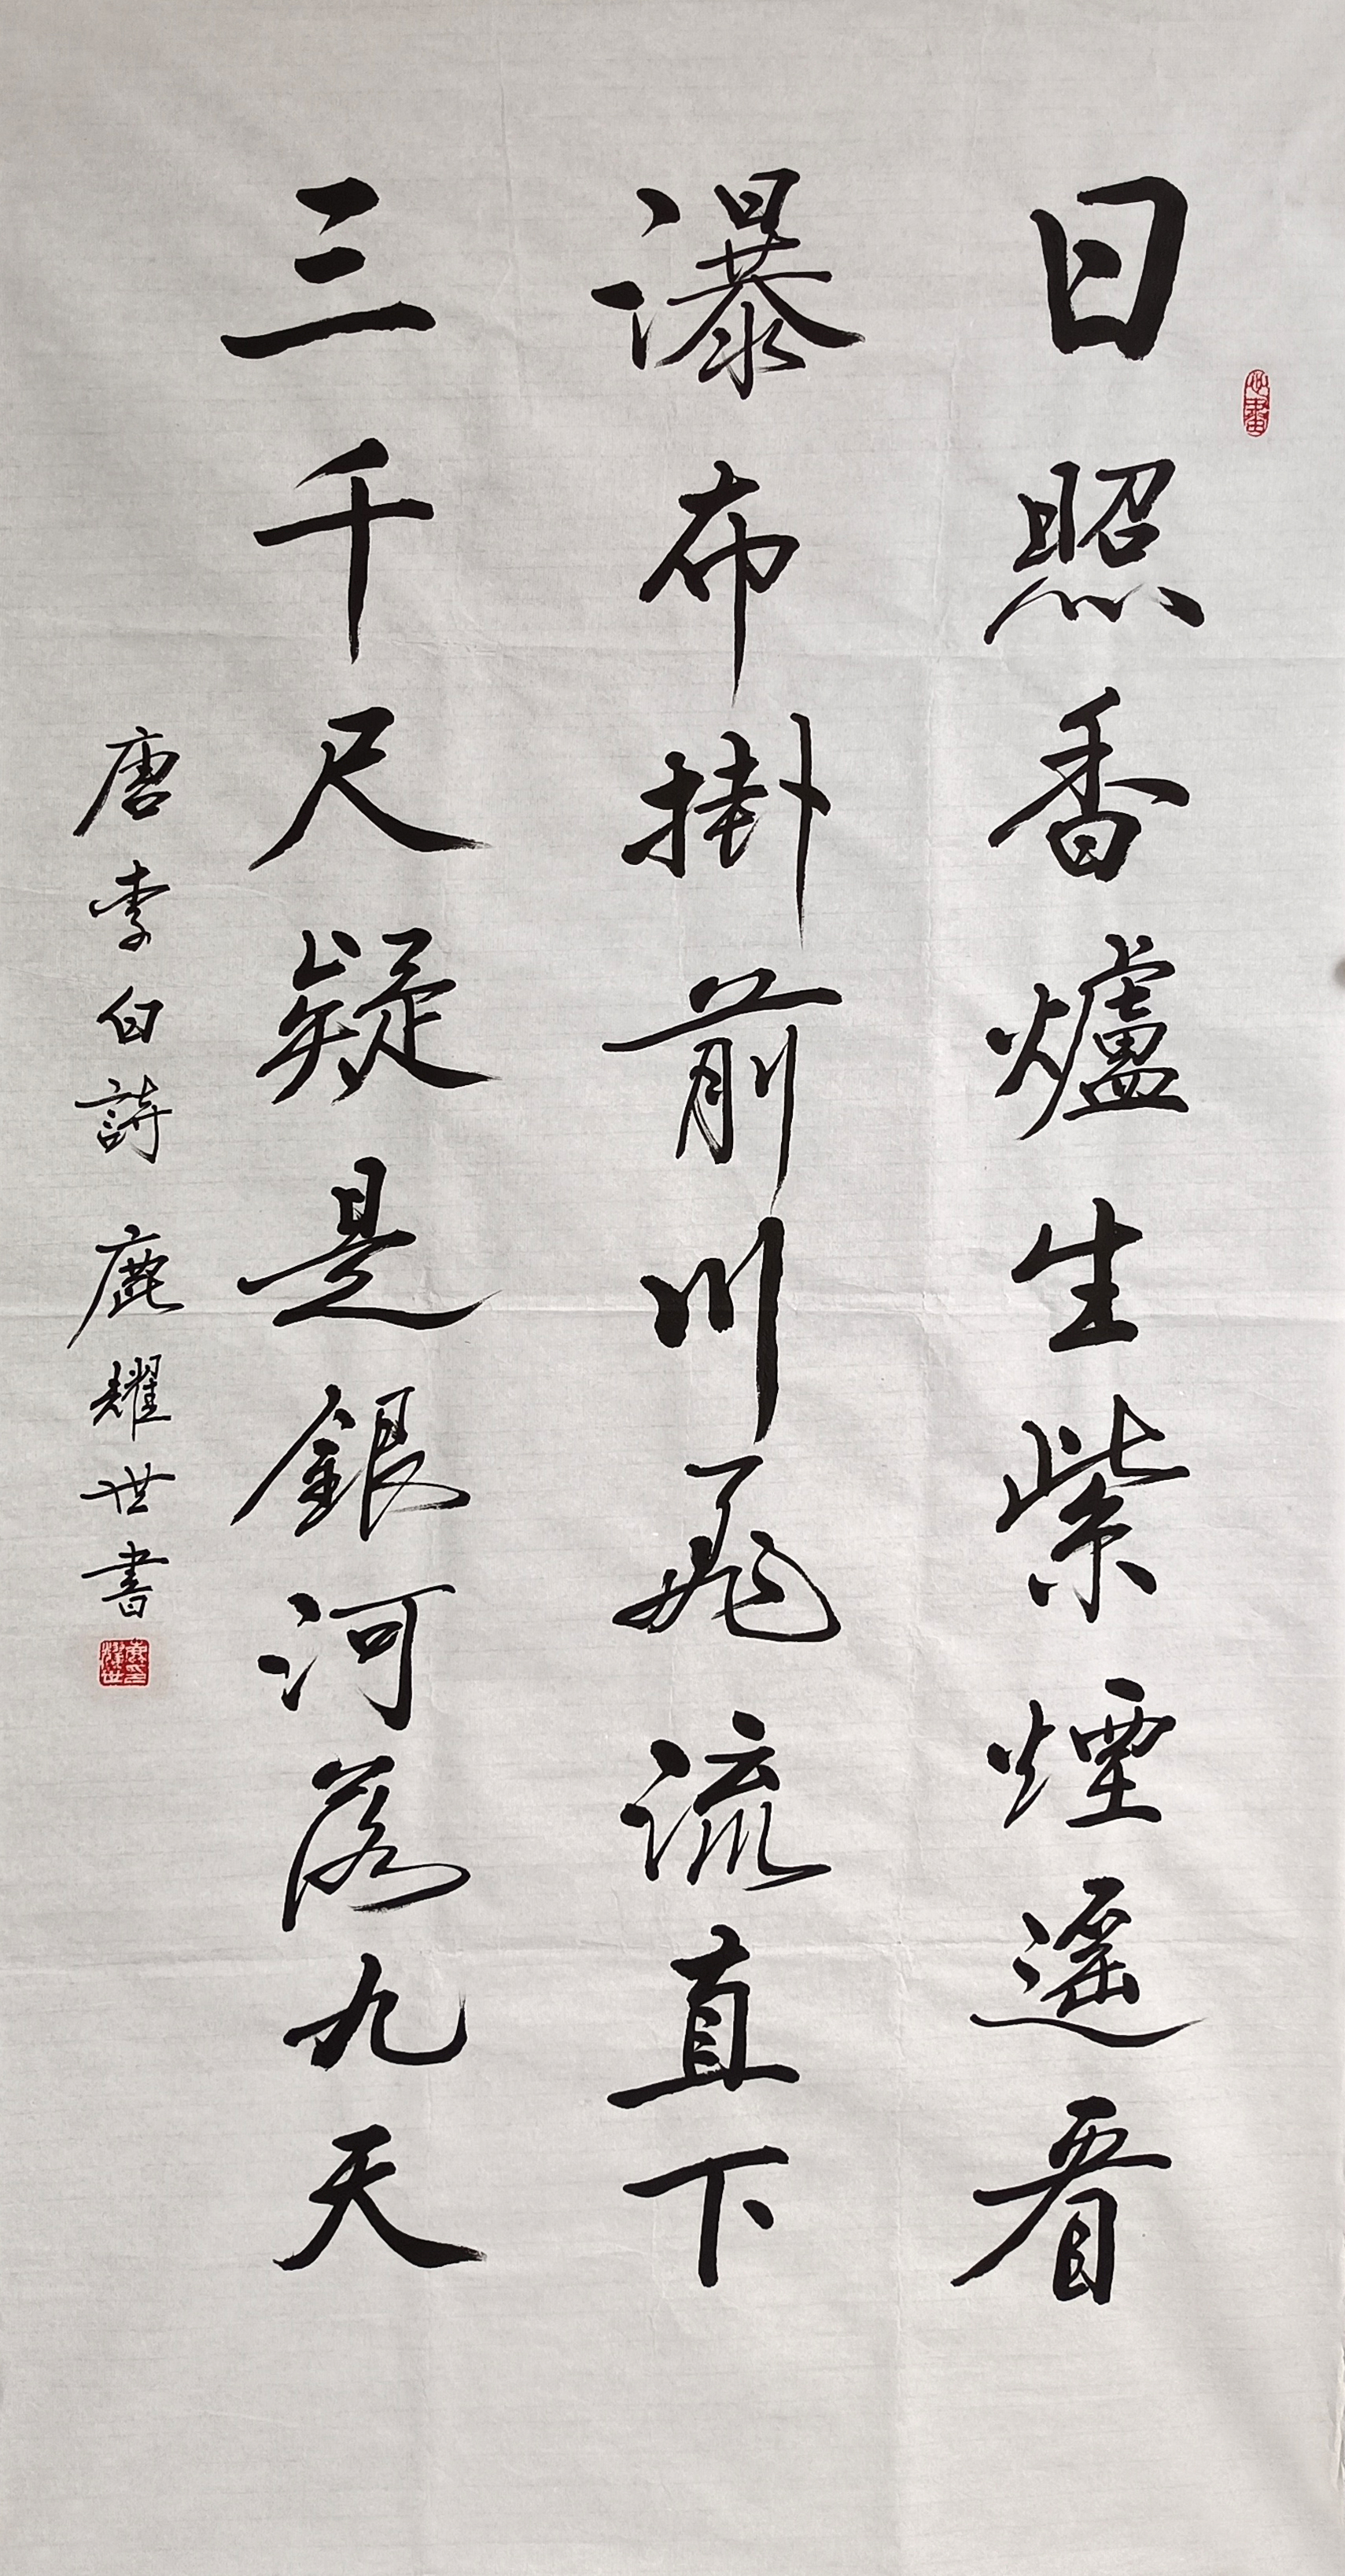 日照香爐生紫煙遥看
瀑布掛前川飛流直下
三千尺疑是銀河落九天
唐李白詩 鹿耀世書